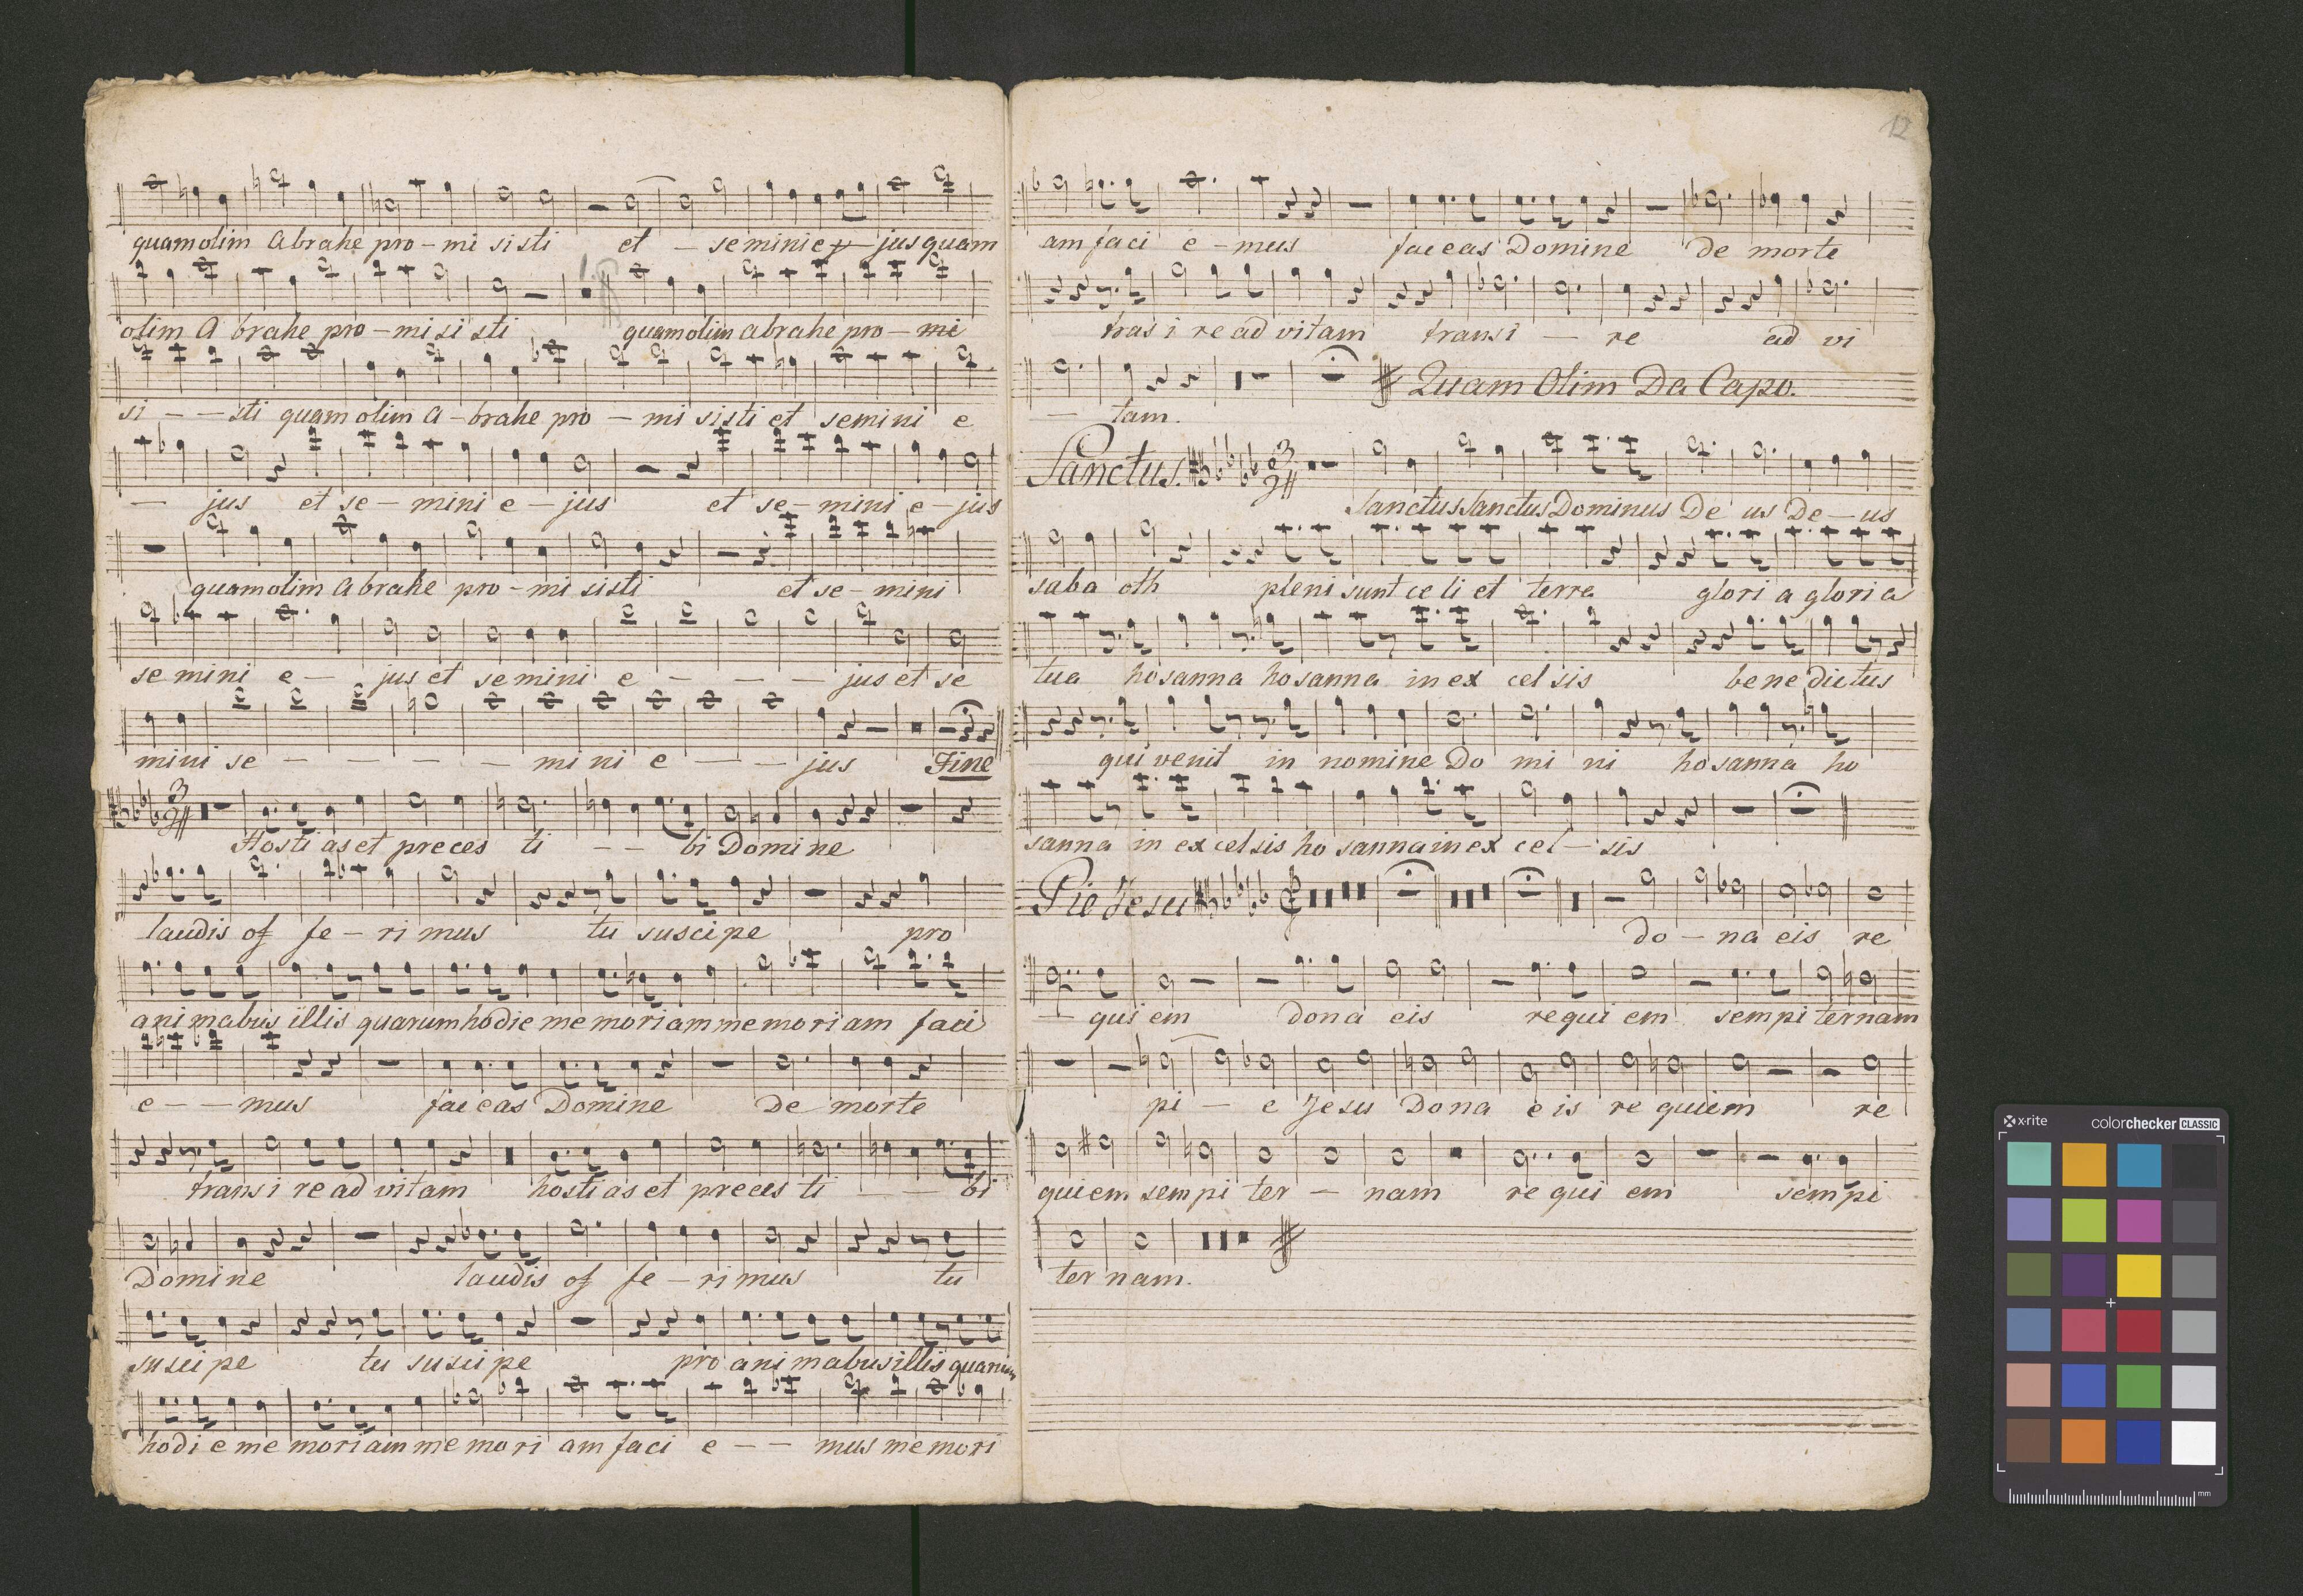 quam olim Abrahe pro - mi sisti et - semini e - jus quam
olim A brahe pro - mi si sti quam olim abrahe pro - mi
si - - sti quam olim A - brahe pro - mi sisti et semini e
- jus et se - mini e - jus et se - mini e - jus
quam olim Abrahe pro - mi sisti et se - mini
se mini e - jus et se mini e - - - jus et se
mini se - - - - - mi ni e - - jus Fine
3 Hosti as et preces ti - - bi Domine
laudis of fe - ri mus tu suscipe pro
ani mabus illis quarum hodie me moriam me mori am faci
e - - mus faceas Domine De morte
transi re ad vitam hosti as et preces ti - - bi
Domine laudis of fe - ri mus tu
suscipe tu suscipe pro ani mabus illis quarum
hodi e me moriam me mori am faci e - - mus memori
12
am faci e - mus faceas Domine de morte
trasi re ad vitam transi - re ad vi
- tam. Quam Olim Da Capo.
Sanctus. 3 Sanctus Sanctus Dominus De us De - us
saba oth pleni sunt celi et terra glori a gloria
tua hosanna hosanna in ex cel sis bene dictus
qui venit in nomine Do mi ni hosanna ho
sanna in ex celsis ho sanna in ex cel - sis
Pie Jesu do - na eis re
- qui em dona eis requi em sempi ternam
pi - e Jesu Dona e is re quiem re
quiem sempi ter - nam re qui em sempi
ter nam.
x-rite colorchecker CLASSIC
mm